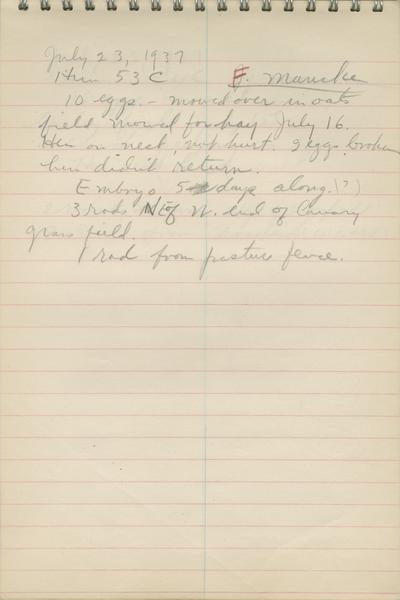 July 23, 1937
1 Hen 53 C F. Manske
10 eggs. - mowed over in oats
field mowed for hay July 16.
Hen on nest, not hurt. 2 eggs broken
hen didn't return.
Embryo 5 days along. (?)
3 rods N of N. end of Canary
grass field.
1 rod from pasture fence.